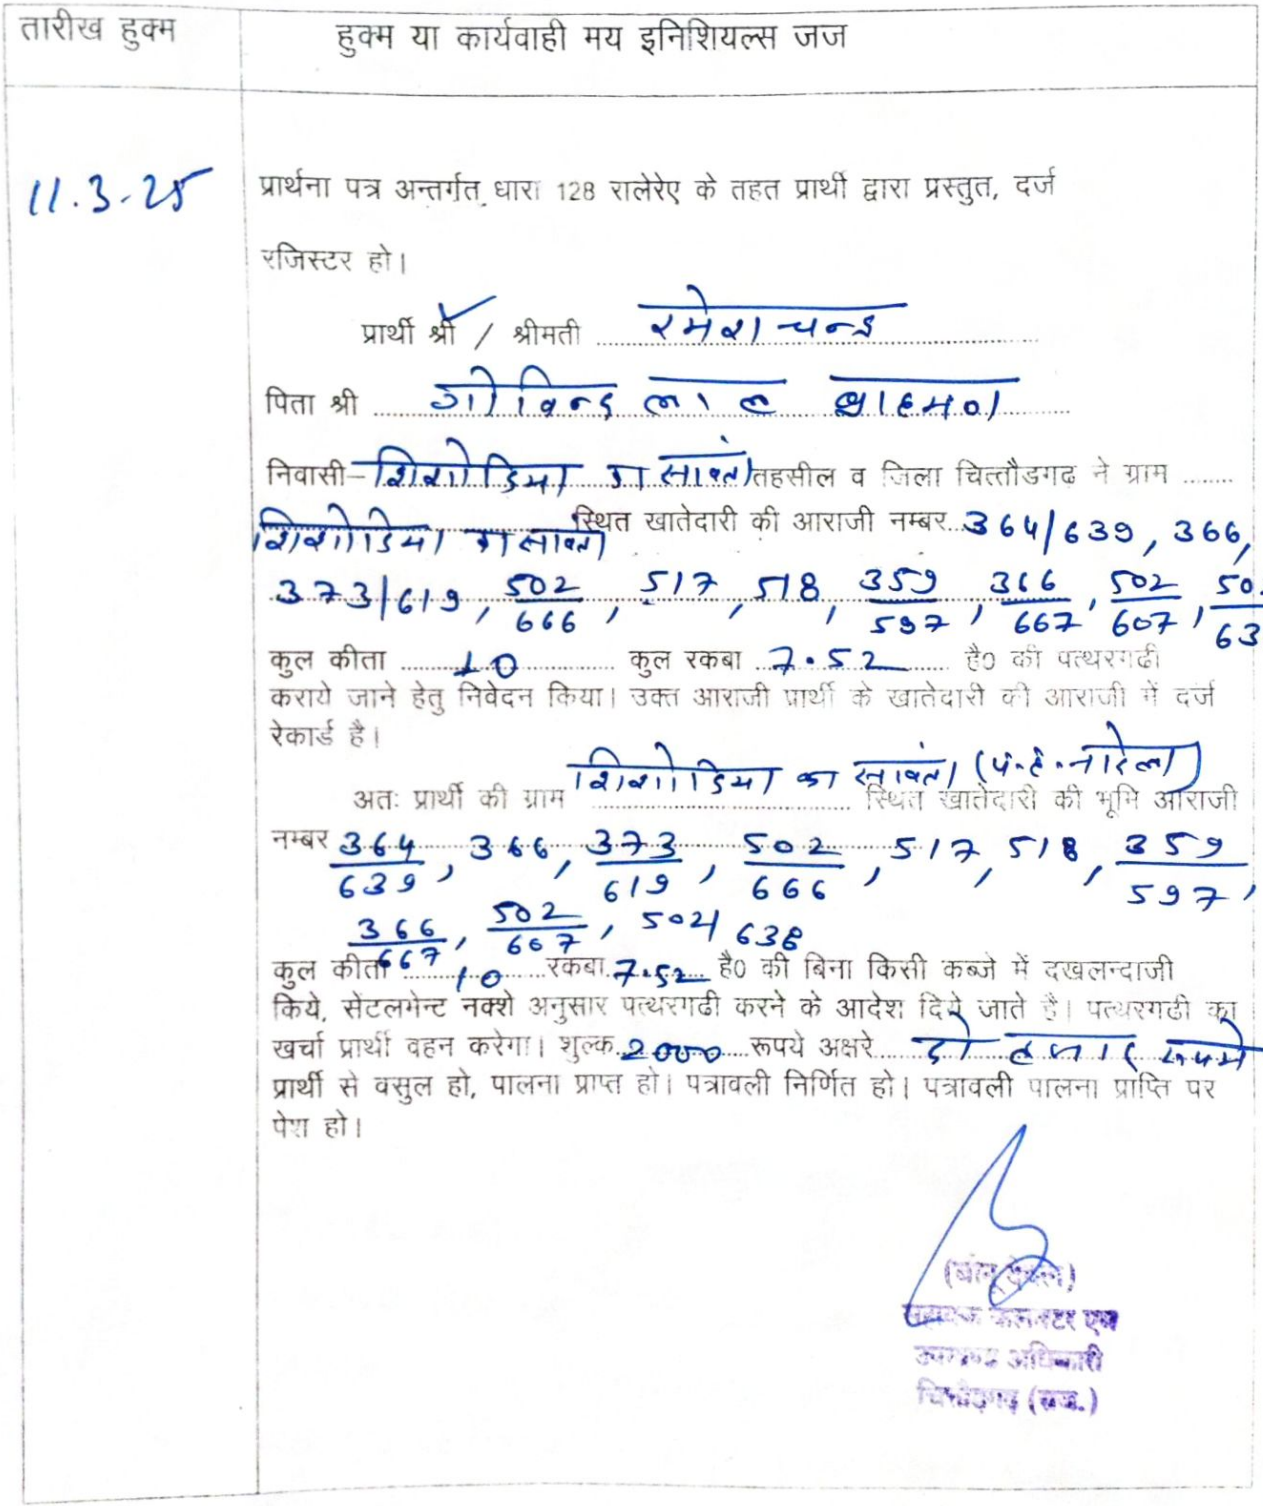 तारीख हुक्म
हुक्म या कार्यवाही मय इनिशियल्स जज
11.3.25
प्रार्थना पत्र अन्तर्गत धारा 128 रालेरेए के तहत प्रार्थी द्वारा प्रस्तुत, दर्ज
रजिस्टर हो।
प्रार्थी श्री / श्रीमती रमेश चन्द्र
पिता श्री गोविन्द लाल ब्राहमण
निवासी- शिशोडिया का सावंता तहसील व जिला चित्तौडगढ ने ग्राम
शिशोडिया का सावंता स्थित खातेदारी की आराजी नम्बर 364/639, 366,
373/619, 502/666, 517, 518, 359/597, 366/667, 502/607,
कुल कीता 10 कुल रकबा 7.52 है0 की पत्थरगढी
कराये जाने हेतु निवेदन किया। उक्त आराजी प्रार्थी के खातेदारी की आराजी में दर्ज
रेकार्ड है।
अतः प्रार्थी की ग्राम शिशोडिया का सावंता (प.ह.नारेला) स्थित खातेदारी की भूमि आराजी
नम्बर 364/639, 366, 373/619, 502/666, 517, 518, 359/597,
366/667, 502/607, 502/638
कुल कीता 10 रकबा 7.52 है0 की बिना किसी कब्जे में दखलन्दाजी
किये, सेंटलमेन्ट नक्शे अनुसार पत्थरगढी करने के आदेश दिये जाते है। पत्थरगढी का
खर्चा प्रार्थी वहन करेगा। शुल्क 2000 रूपये अक्षरे दो हजार रूपये
प्रार्थी से वसुल हो, पालना प्राप्त हो। पत्रावली निर्णित हो। पत्रावली पालना प्राप्ति पर
पेश हो।
सहायक कलक्टर एवं
उपखण्ड अधिकारी
चित्तौड़गढ़ (राज.)